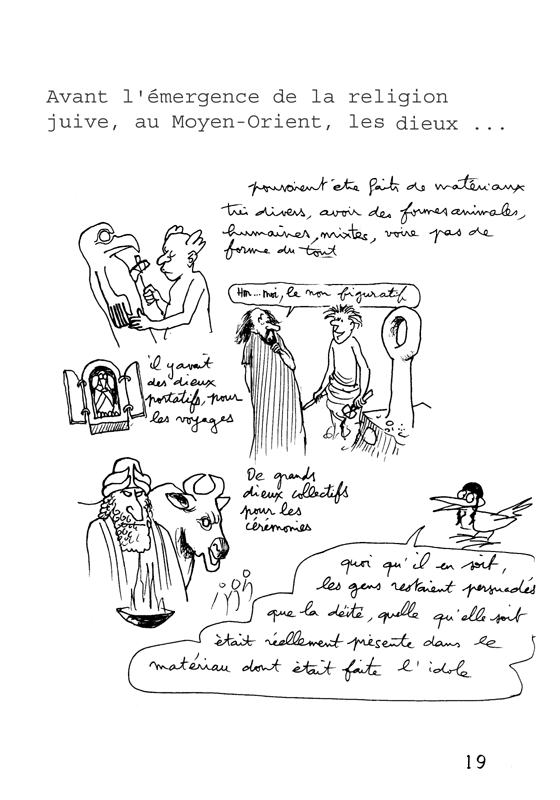 Avant l'émergence de la religion
juive, au Moyen-Orient, les dieux ...
pouvaient être faits de matériaux
très divers, avoir des formes animales,
humaines, mixtes, voire pas de
forme du tout
Hm... moi, le non figuratif
il y avait
des dieux
portatifs, pour
les voyages
De grands
dieux collectifs
pour les
cérémonies
quoi qu'il en soit,
les gens restaient persuadés
que la déité, quelle qu'elle soit
était réellement présente dans le
matériau dont était faite l'idole
19